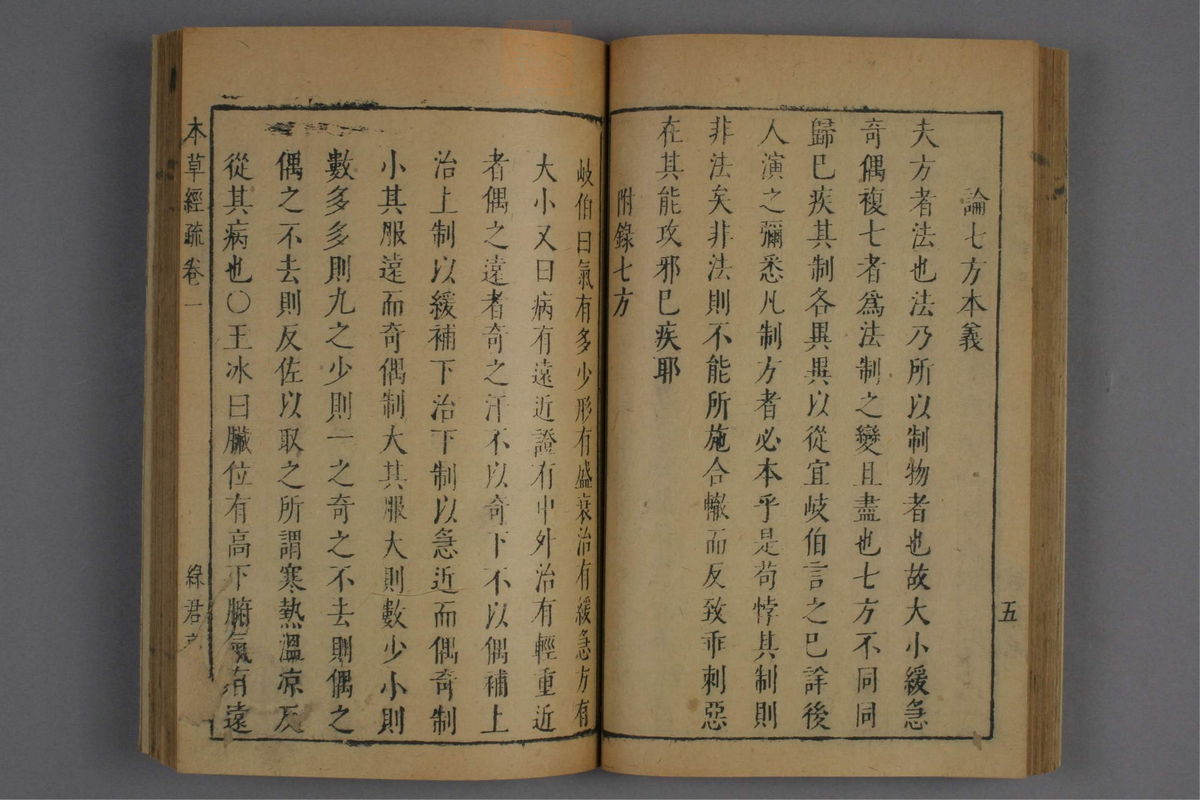 五
論七方本義
夫方者法也法乃所以制物者也故大小緩急
奇偶複七者爲法制之變且盡也七方不同同
歸巳疾其制各異異以從宜岐伯言之巳詳後
人演之彌悉凡制方者必本乎是苟悖其制則
非法矣非法則不能所施合轍而反致乖刺惡
在其能攻邪巳疾耶
附錄七方
岐伯曰氣有多少形有盛衰治有緩急方有
大小又曰病有遠近證有中外治有輕重近
者偶之遠者奇之汗不以奇下不以偶補上
治上制以緩補下治下制以急近而偶奇制
小其服遠而奇偶制大其服大則數少小則
數多多則九之少則一之奇之不去則偶之
偶之不去則反佐以取之所謂寒熱溫凉反
從其病也〇王冰曰臟位有高下腑氣有遠
本草經疏卷一
綠君